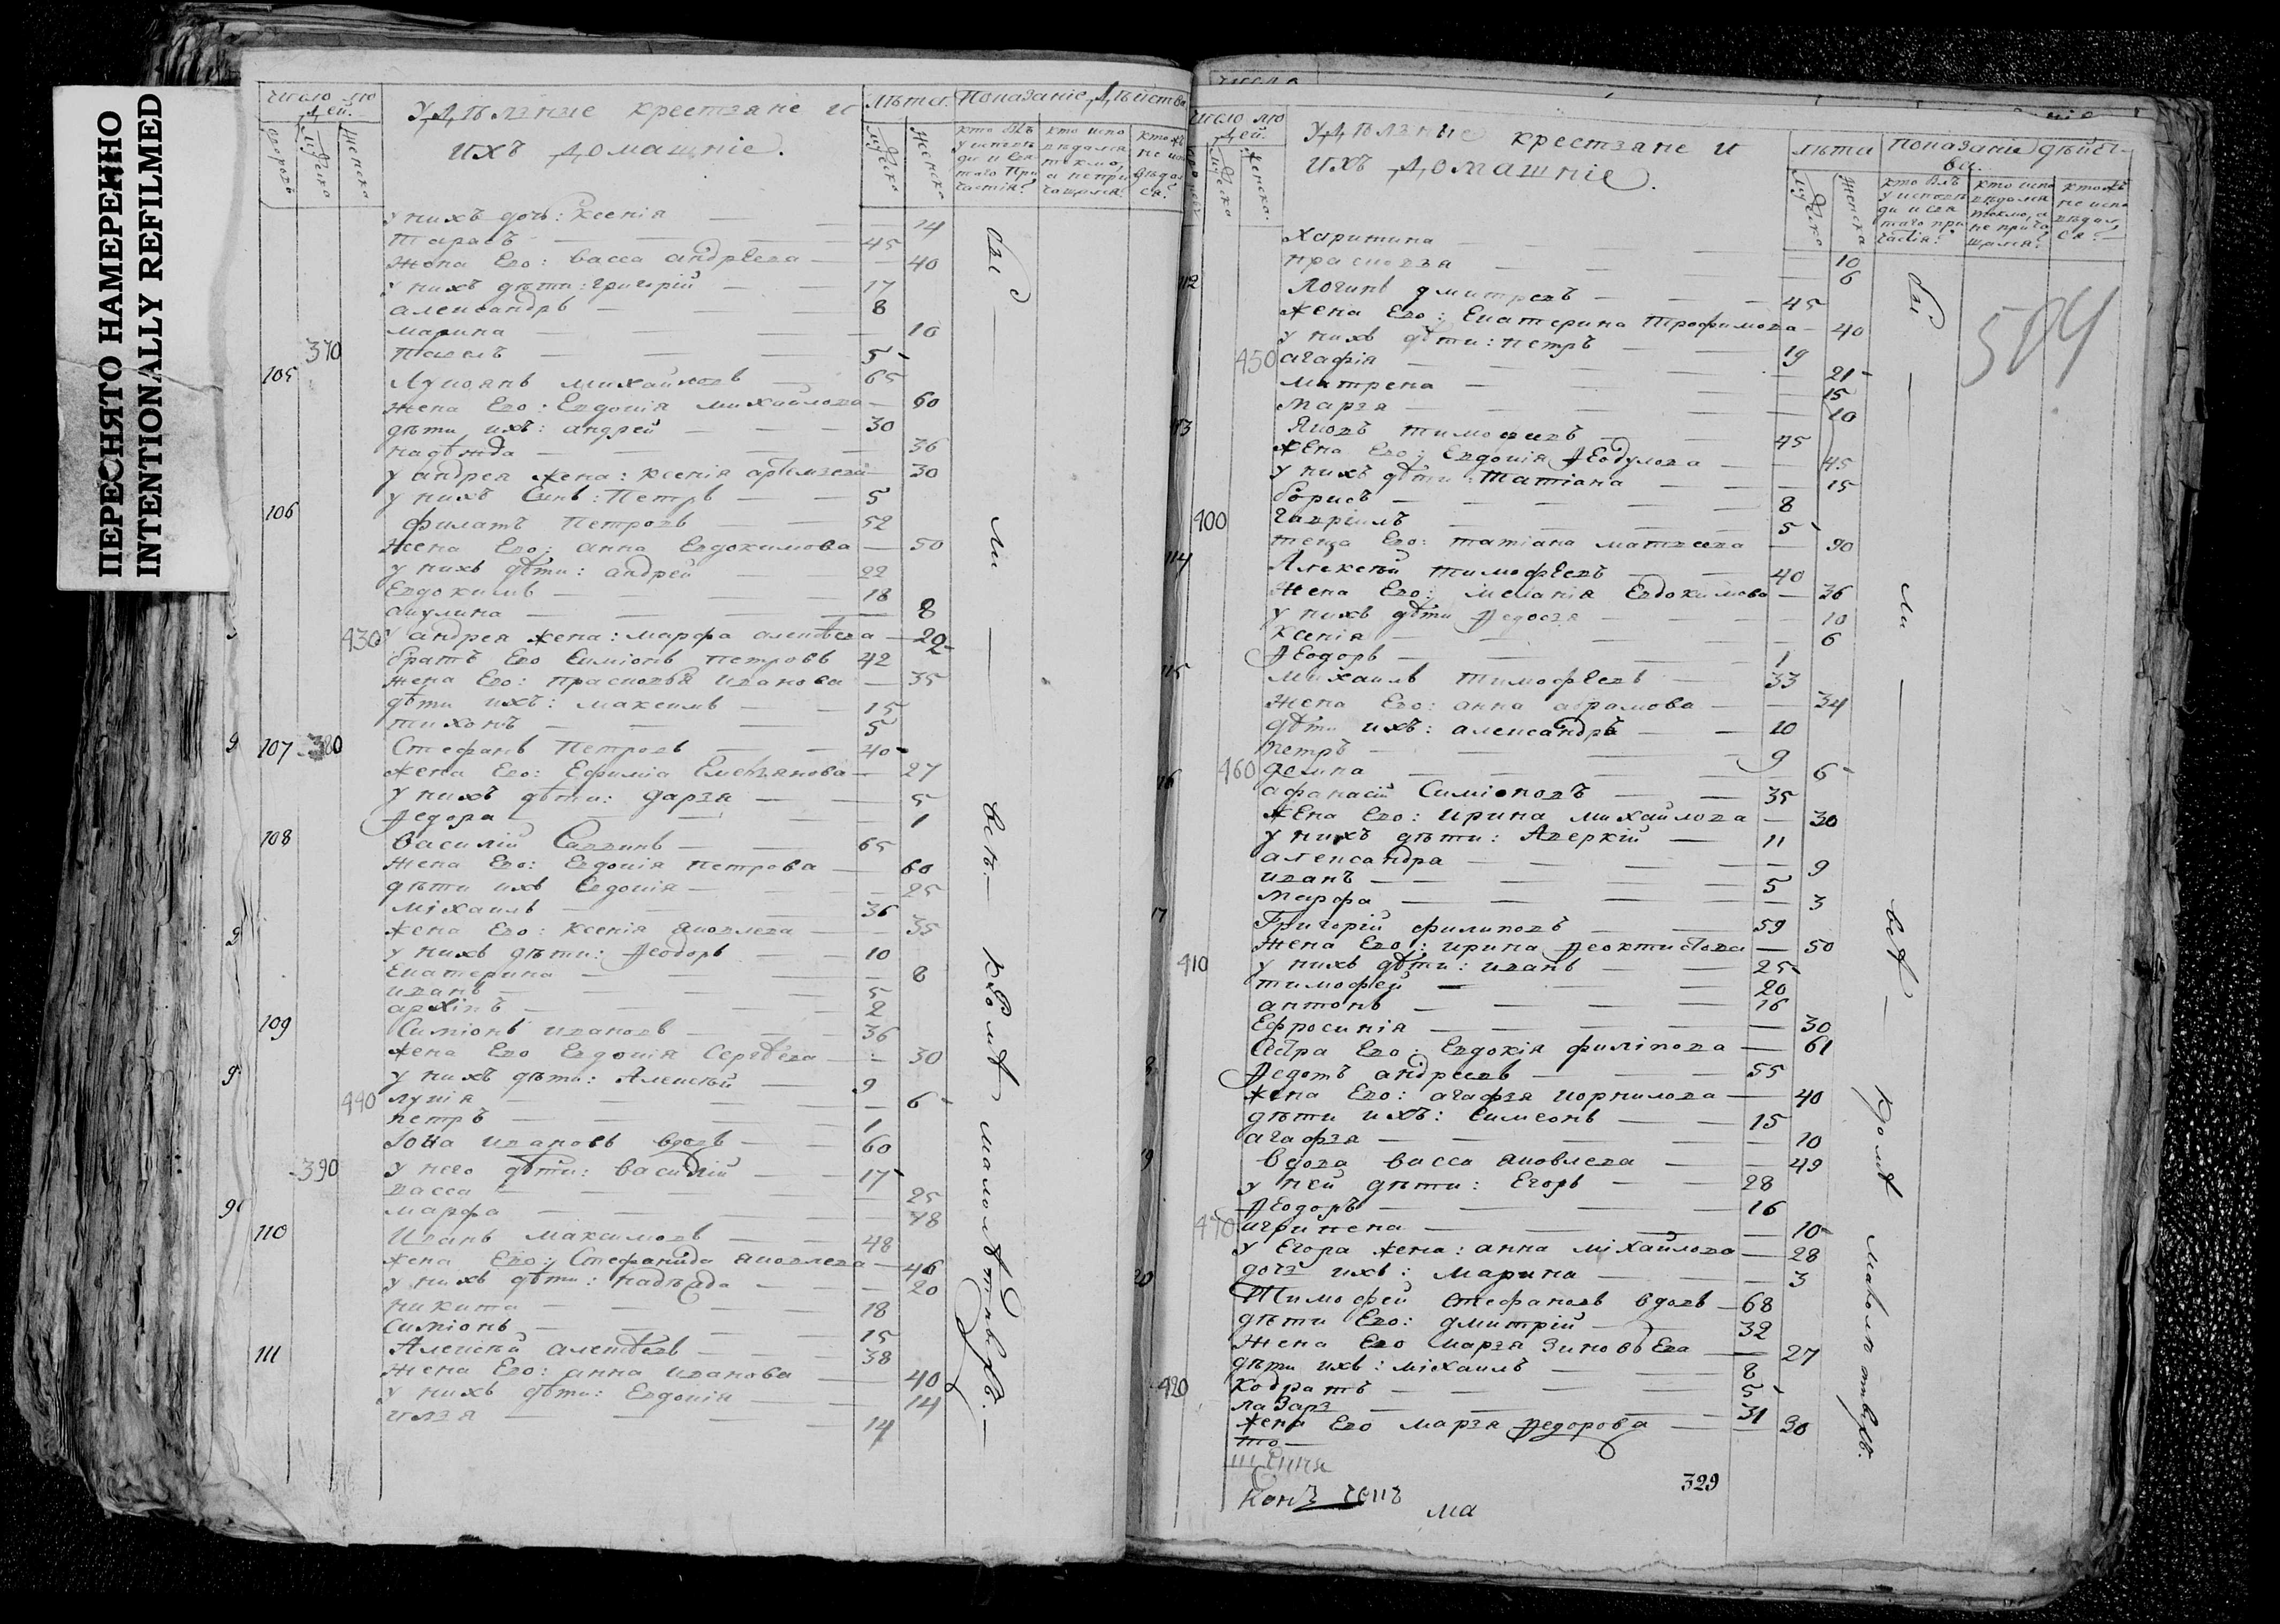 ПЕРЕСНЯТО НАМЕРЕННО
INTENTIONALLY REFILMED
число лю
дей.
дворовъ
Мужска
Женска
Удѣлзные крестзяне и
ихъ домашніе.
лѣта.
Мужска
Женска
Показаніе дѣйства
кто былъ у исповѣди и святаго причастія?
кто исповѣдался токмо, а не причащался.
кто жъ не исповѣдался?
у нихъ дочь: Ксенія — 14
Тарасъ — 45
жена Его: васса андрѣева — 40
у нихъ дѣти: григорій — 17
александръ — 8
марина — 10
370 павелъ — 5
105 Лукоянъ михайловъ — 65
жена Его: Евдокія михайлова — 60
дѣти ихъ: андрей — 30
надѣжда — 36
у андрея жена: ксенія — 30
у нихъ Сынъ: Петръ — 5
106 филатъ Петровъ — 52
жена Его: анна Евдокимова — 50
у нихъ дѣти: андрей — 22
Евдокимъ — 18
акулина — 8
430 у андрея жена: марфа алексѣева — 22
братъ Его Симіонъ петровъ 42
жена Его: прасковья иванова — 35
дѣти ихъ: максимъ — 15
тихонъ — 5
107 380 Стефанъ Петровъ — 40
жена Его: Ефиміа Емельянова — 27
у нихъ дѣти: дарзя — 5
Ѳедора — 1
108 Василій Саввинъ — 65
жена Его: Евдокія петрова — 60
дѣти ихъ Евдокія — 25
міхаилъ — 36
жена Его: ксенія яковлева — 35
у нихъ дѣти: Ѳеодоръ — 10
Екатерина — 8
иванъ — 5
архіпъ — 2
109 Симіонъ ивановъ — 36
жена Его Евдокія Сергѣева — 30
у нихъ дѣти: Алексѣй — 9
440 лукія — 6
петръ — 1
Іона ивановъ вдовъ — 60
390 у него дѣти: василій — 17
васса — 25
марфа — 18
110 Иванъ максимовъ — 48
жена Его: Стефанида яковлева — 46
у нихъ дѣти: надѣжда — 20
никита — 18
симіонъ — 15
111 Алексѣй алексѣевъ — 38
жена Его: анна иванова — 40
у нихъ дѣти: Евдокія — 14
илзя — 14
бы — ли — всѣ — кромѣ малолѣтнвхъ. —
число лю
дей.
Мужска
Женска.
Удѣлзные крестзяне и
ихъ домашніе.
лѣта
Мужска
Женска
показаніе дѣйст-
ва.
кто былъ у исповѣди и святаго причастія?
кто исповѣдался токмо, а не причащался?
кто жъ не исповѣдался?
504
Харитина — 10
прасковзя — 6
112 Логинъ дмитревъ — 45
жена Его: Екатерина Трофимова — 40
у нихъ дѣти: петръ — 19
450 агафія — 21
матрена — 15
марзя — 10
113 Яковъ тимофеевъ — 45
жена Его: Евдокія Ѳеодулова — 45
у нихъ дѣти: татіана — 15
борисъ — 8
400 гавріилъ — 5
теща Его: татіана матвеева — 90
114 Алексѣй тимофѣевъ — 40
жена Его: меланія Евдокимова — 36
у нихъ дѣти Ѳедосзя — 10
ксенія — 6
Ѳеодоръ — 1
115 михаилъ тимофѣевъ — 33
жена Его: анна абрамова — 34
дѣти ихъ: александръ — 10
петръ — 9
460 — 6
116 афанасій Симіоновъ — 35
жена Его: ирина михайлова — 30
у нихъ дѣти: Аверкій — 11
александра — 9
иванъ — 5
марфа — 3
117 Григорій филиповъ — 59
жена Его: ирина Ѳеоктистова — 50
410 у нихъ дѣти: иванъ — 25
тимофей — 20
антонъ — 16
Ефросинія — 30
сестра Его: Евдокія филіпова — 61
Ѳедотъ андреевъ — 55
жена Его: агафзя корнилова — 40
дѣти ихъ: симеонъ — 15
агафзя — 10
вдова васса яковлева — 49
у ней дѣти: Егоръ — 28
Ѳеодоръ — 16
470 агрипена — 10
у Егора жена: анна міхайлова — 28
дочз ихъ: марина — 3
Тимофей стефановъ вдовъ — 68
дѣти Его: дмитрій — 32
жена Его марзя Зиновьева — 27
дѣти ихъ: міхаилъ — 8
420 кодратъ — 5
лазарз — 31
жена Его марзя Ѳедорова — 30
бы — ли — всѣ — кромѣ малолѣтнвхъ.
329
ма